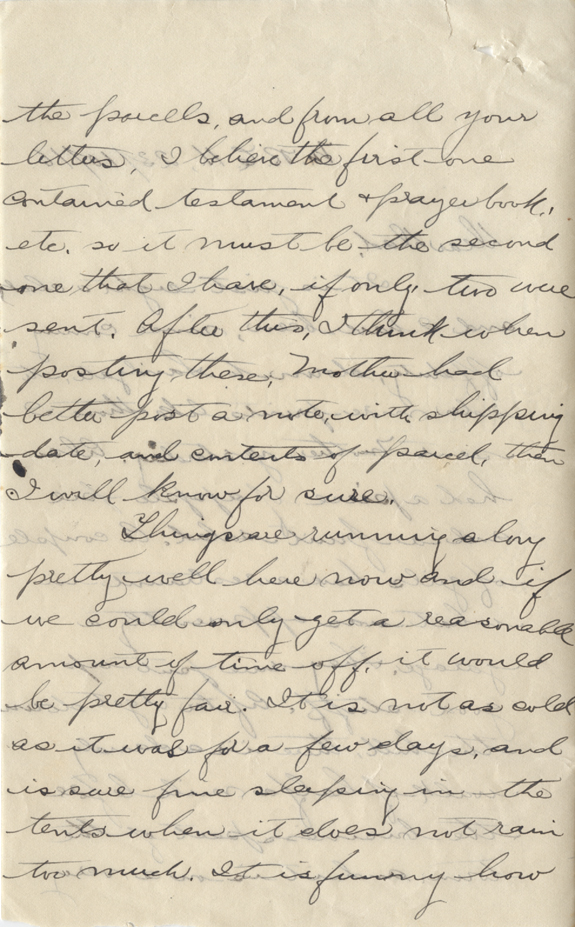 the parcels, and from all your
letters, I believe the first one
contained testament & prayerbook,
etc. so it must be the second
one that I have, if only two were
sent. After this, I think when
posting these, Mother had
better post a note, with shipping
date, and contents of parcel, then
I will know for sure.
Things are running along
pretty well here now and if
we could only get a reasonable
amount of time off, it would
be pretty fair. It is not as cold
as it was for a few days, and
is sure fine sleeping in the
tents when it does not rain
too much. It is funny how